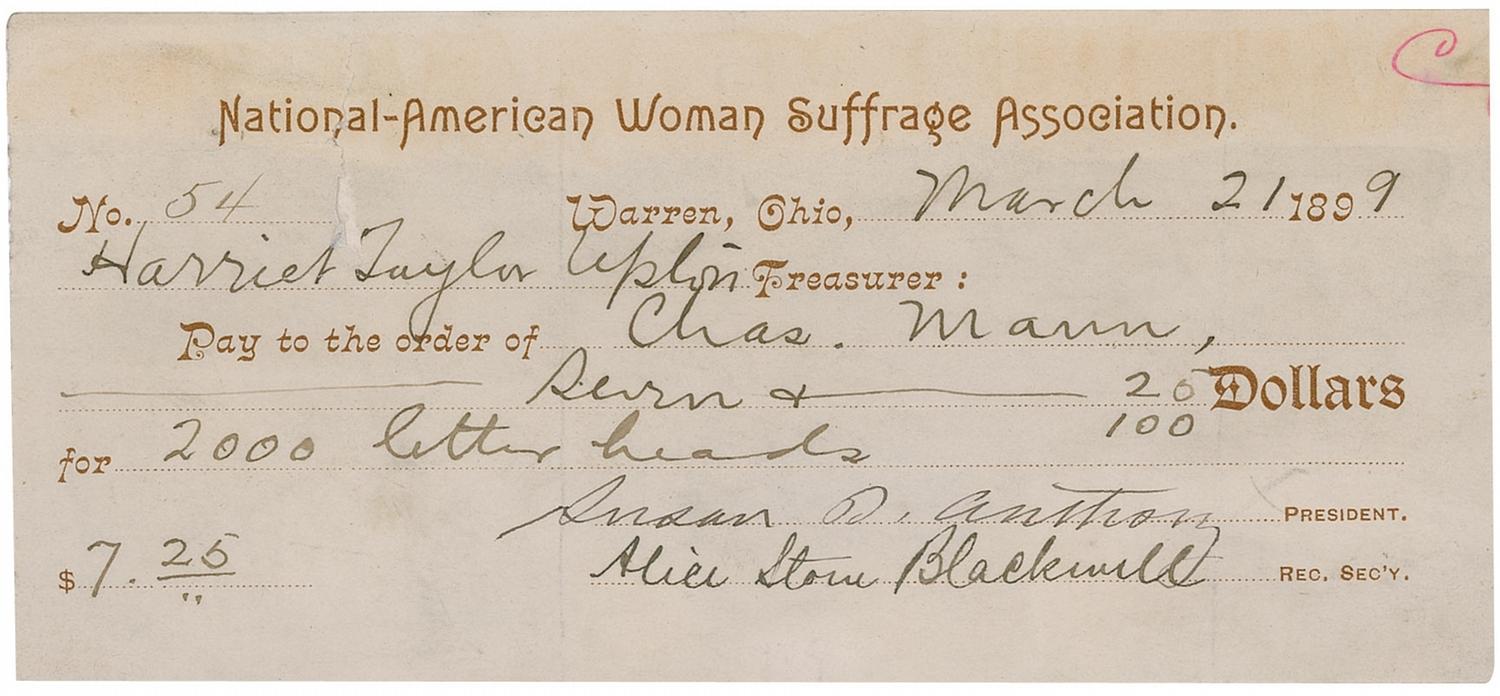 C
National-American Woman Suffrage Association.
No. 54 Warren, Ohio, March 21 1899
Harriet Taylor Upton Treasurer :
Pay to the order of Chas. Mann,
Seven & 25/100 Dollars
for 2000 letter heads
Susan B. Anthony PRESIDENT.
$ 7. 25 Alice Stone Blackwell REC. SEC'Y.